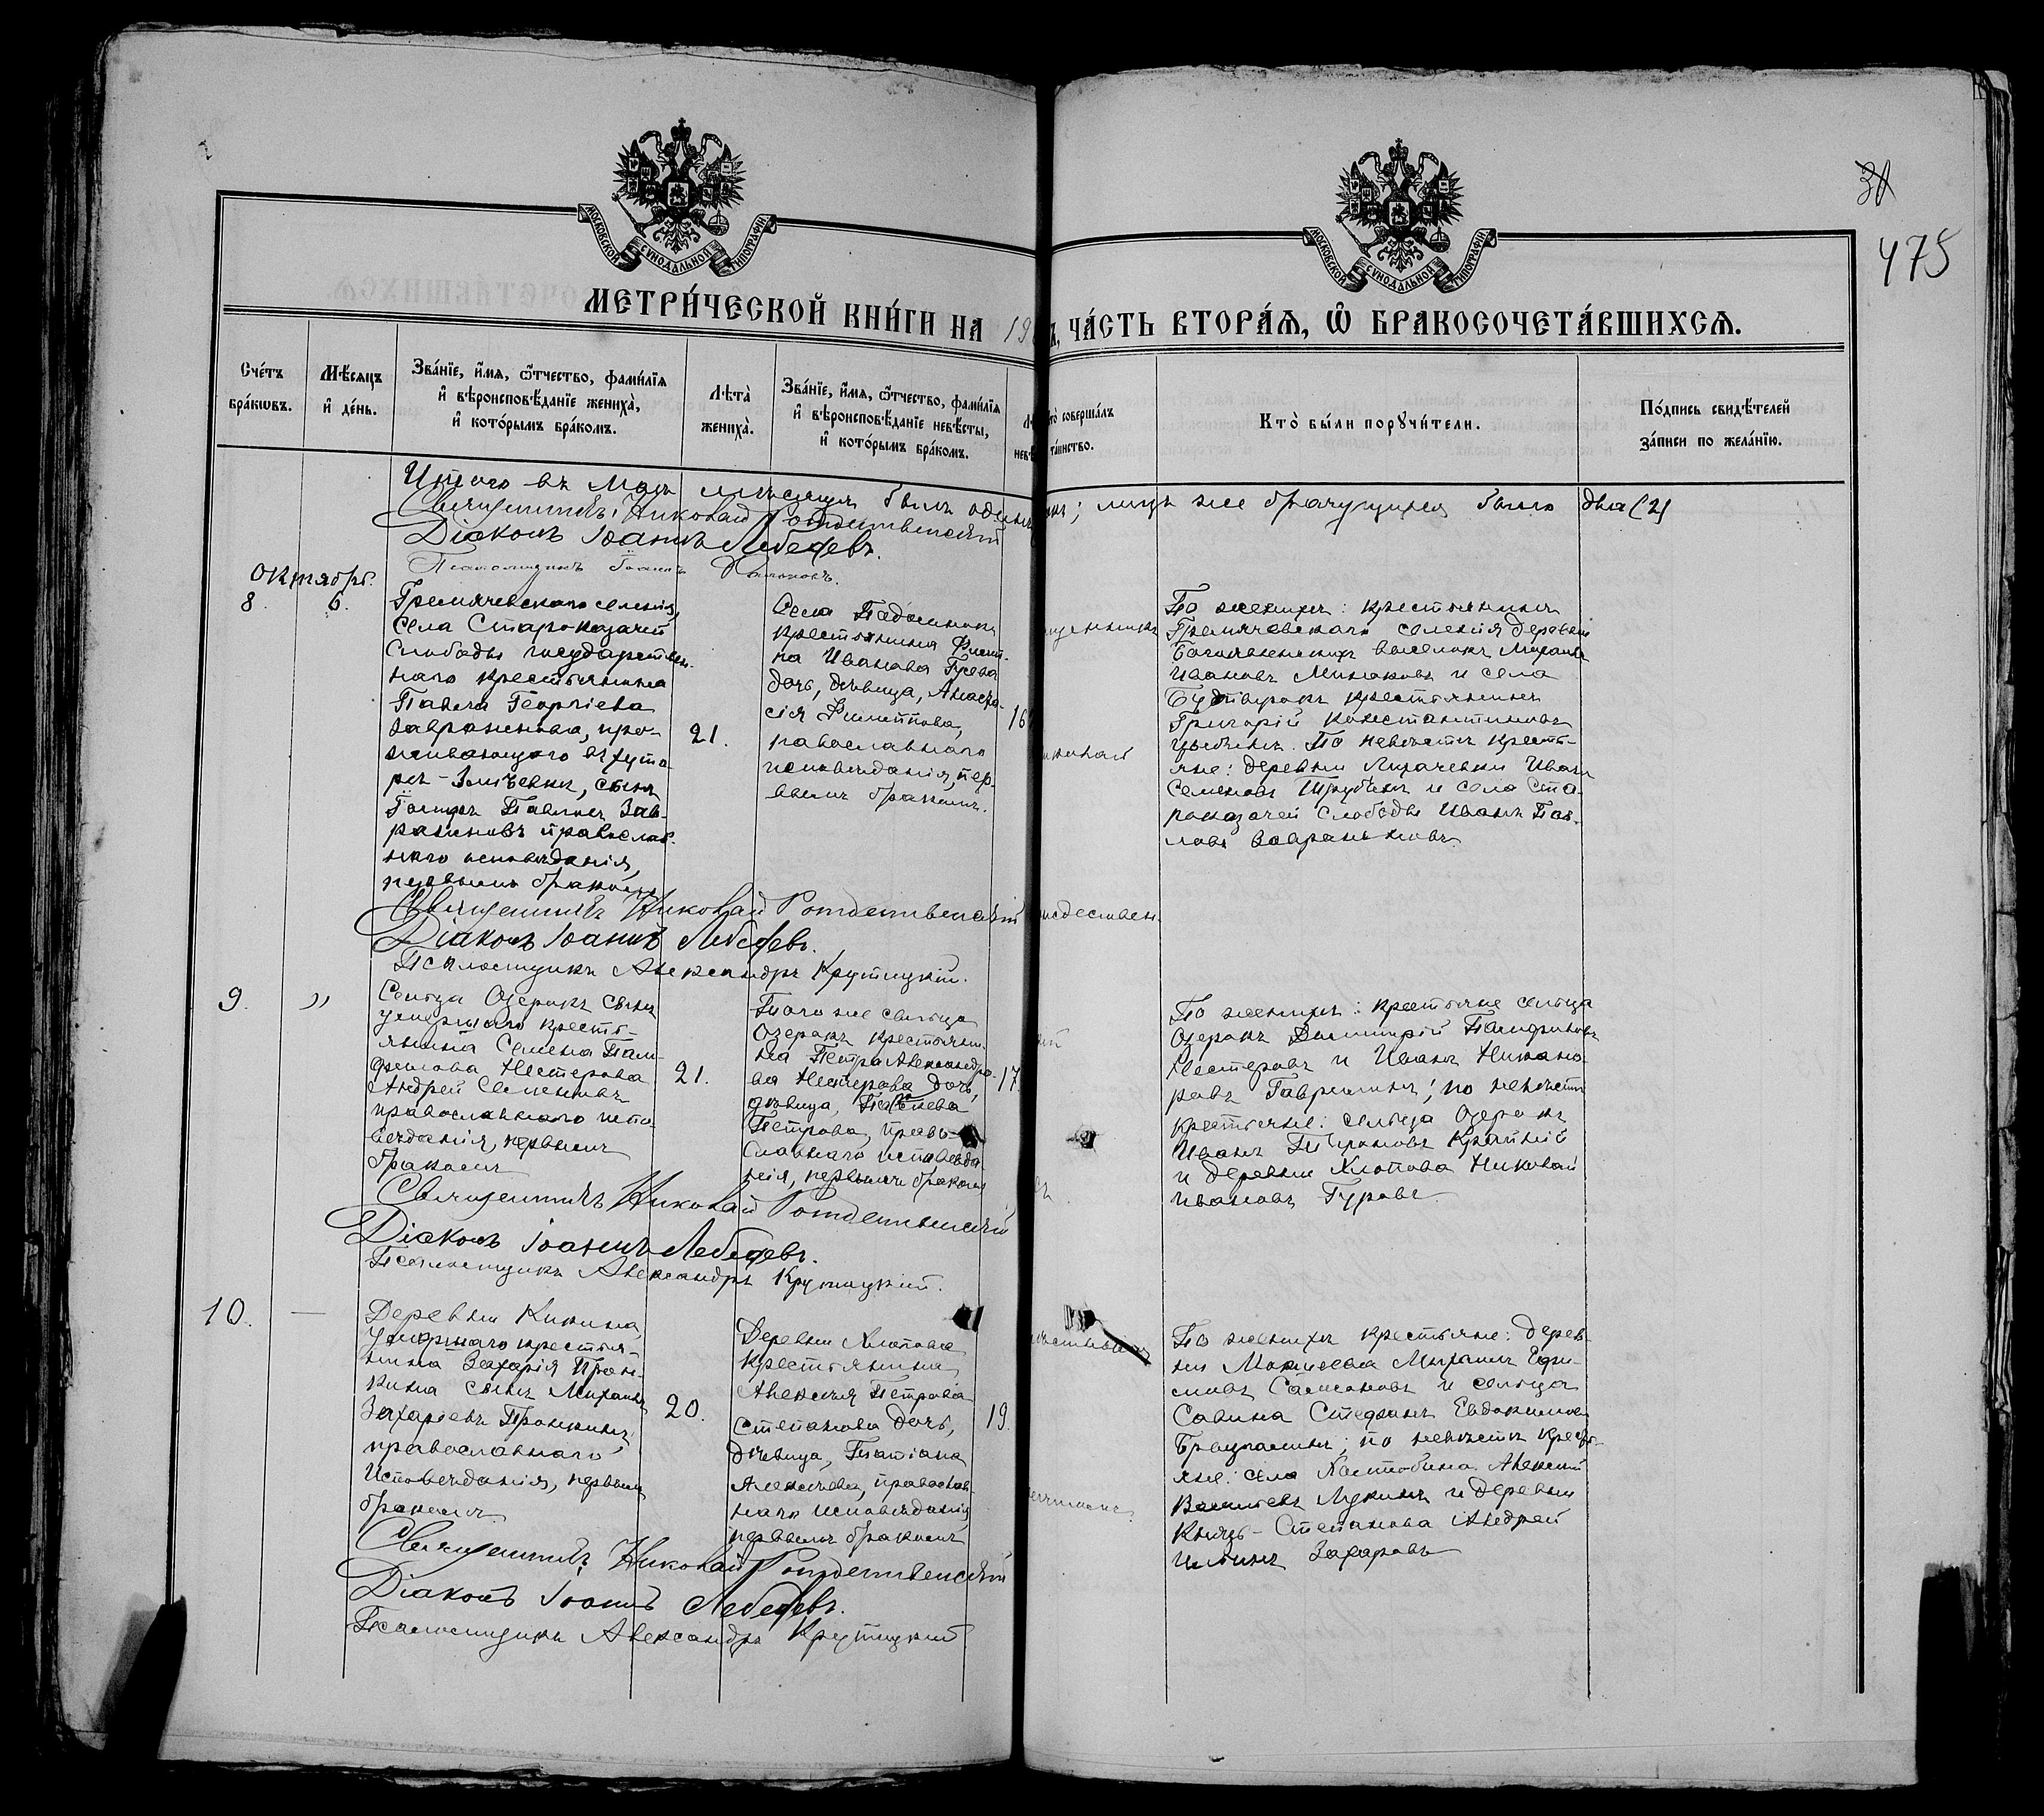 30
475
МОСКОВСКОЙ СУНОДАЛЬНОЙ ТИПОГРАФІИ
МОСКОВСКОЙ СУНОДАЛЬНОЙ ТИПОГРАФІИ
МЕТРИ́ЧЕСКОЙ КНИ́ГИ НА 19
ЧА́СТЬ ВТОРА́Я, Ѽ БРАКОСОЧЕТА́ВШИХСЯ.
Сче́тъ бра́кωвъ.
Мѣ́сяцъ и҆ де́нь.
Зва́нїе, и҆́мя, ѻ҆́тчество, фами́лїя
и҆ вѣроисповѣ́данїе жениха̀,
и҆ кото́рымъ бра́комъ.
Лѣта̀ жениха̀.
Зва́нїе, и҆́мя, ѻ҆́тчество, фами́лїя
и҆ вѣроисповѣ́данїе невѣ́сты,
и҆ кото́рымъ бра́комъ.
то̀ соверша́лъ
та́инство.
Кто̀ бы́ли порꙋчи́тели.
По́дпись свидѣ́телей
за́писи по жела́нїю.
Итого въ Маѣ мѣсяцѣ былъ одинъ
лицъ же брачущихся было два (2)
Священникъ Николай Рождественскій
Діаконъ Іоаннъ Лебедевъ.
Псаломщикъ Іоаннъ
Октябрь.
8.
6.
Гремячевскаго селенія,
села Староказачей
Слободы государствен-
наго крестьянина
Павла Георгіева
Завражнова, про-
живающаго въ хуто-
рѣ-Змѣевкѣ, сынъ
Павловъ Зав-
ражновъ православ-
наго исповѣданія,
первымъ бракомъ
21.
Села
крестьянина Филип-
па Иванова Гусева
дочь, дѣвица, Анаста-
сія Филиппова,
православнаго
исповѣданія, пер-
вымъ бракомъ.
16
щенникъ
николай
ождествен.
По женихѣ: крестьянинъ
Гремячевскаго селенія деревни
Богоявленскихъ выселокъ Михаилъ
Ивановъ Минаковъ и села
крестьянинъ
Григорій Константиновъ
По невѣстѣ кресть-
яне: деревни Лихачевки Иванъ
Семеновъ Трубинъ и села Ста-
роказачей Слободы Иванъ Пав-
ловъ Завражновъ
Священникъ Николай Рождественскій
Діаконъ Іоаннъ Лебедевъ.
Псаломщикъ Александръ Крутицкій.
9.
"
Сельца Озерокъ сынъ
умершаго кресть-
янина Семена Пам-
филова Нестерова
Андрей Семеновъ
православнаго испо-
вѣданія, первымъ
бракомъ
21.
Того же сельца
Озерокъ крестьяни-
на Петра Александро-
ва Нестерова дочь,
дѣвица,
Петрова, право-
славнаго исповѣда-
нія, первымъ бракомъ
17
По женихѣ: крестьяне сельца
Озерокъ Димитрій Памфиловъ
Нестеровъ и Иванъ Никано-
ровъ Гаврилинъ; по невѣстѣ
крестьяне: сельца Озерокъ
Иванъ
и деревни Хлопова Николай
Ивановъ Гуровъ
Священникъ Николай Рождественскій
Діаконъ Іоаннъ Лебедевъ.
Псаломщикъ Александръ Крутицкій.
10.
—
Деревни Кикина,
умершаго крестья-
нина Захарія Прон-
кина сынъ Михаилъ
Захаріевъ Пронкинъ,
православнаго
исповѣданія, первымъ
бракомъ
20.
Деревни Хлопова
крестьянина
Алексія Петрова
Степанова дочь,
дѣвица, Татіана
Алексѣева, православ-
наго исповѣданія
первымъ бракомъ
19.
По женихѣ крестьяне: дерев-
ни Моисеева Михаилъ Ефи-
мовъ Самсоновъ и сельца
Савина Стефанъ Евдокимовъ
по невѣстѣ кресть-
яне: села Хлотобина Алексій
Васильевъ Лукинъ и деревни
Князь-Степанова Андрей
Ильинъ Захаровъ
Священникъ Николай Рождественскій
Діаконъ Іоаннъ Лебедевъ.
Псаломщикъ Александръ Крутицкій